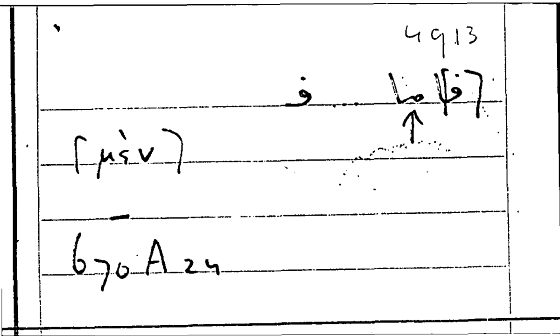 4913
[فا]ما .... ف
[μὲν]
670 A 24